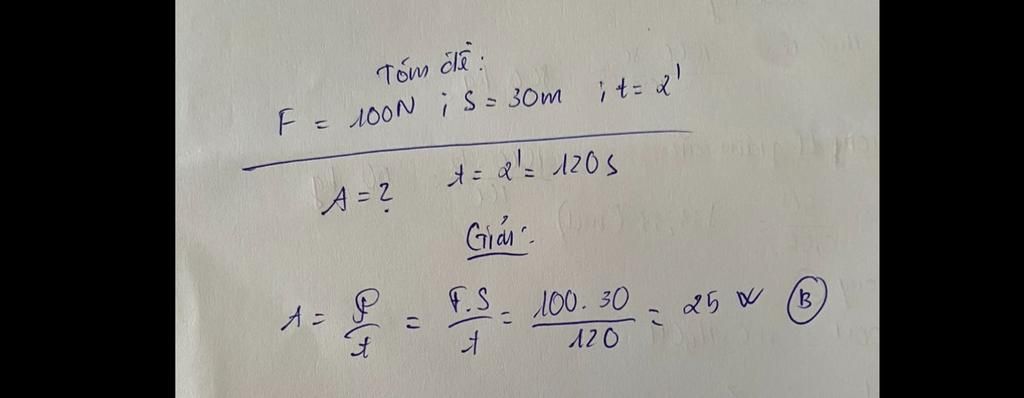 Tóm đề:
F = 100N ; S = 30m ; t = 2'
A = ? t = 2' = 120s
Giải:
A = P/t = F.S/t = 100.30/120 = 25 W (B)